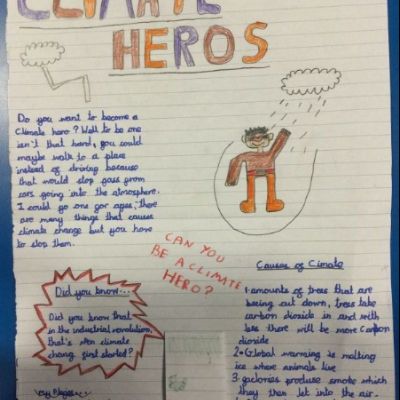 CLIMATE
HEROS
Do you want to become a
Climate hero? Well to be one
isn't that hard, you could
maybe walk to a place
instead of driving because
that would stop gases from
cars going into the atmosphere.
I could go one for ages, there
are many things that causes
climate change but you have
to stop them.
CAN YOU
BE A CLIMATE
HERO?
Did you know...
Did you know that
in the industrial revolution,
that's when climate
chang first started?
Causes of Climate
1. amounts of trees that are
being cut down, trees take
carbon dioxide in and with
less there will be more Carbon
dioxide
2. Global warming is melting
ice where animals live
3. factories produce smoke which
they then let into the air.